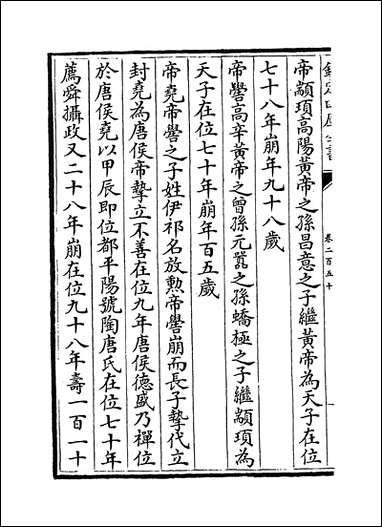 欽定四庫全書
卷二百五十
帝顓頊高陽黃帝之孫昌意之子繼黃帝為天子在位
七十八年崩年九十八歲
帝嚳高辛黃帝之曾孫元囂之孫蟜極之子繼顓頊為
天子在位七十年崩年百五歲
帝堯帝嚳之子姓伊祁名放勲帝嚳崩而長子摯代立
封堯為唐侯帝摯立不善在位九年唐侯德盛乃禪位
於唐侯堯以甲辰即位都平陽號陶唐氏在位七十年
薦舜攝政又二十八年崩在位九十八年壽一百一十